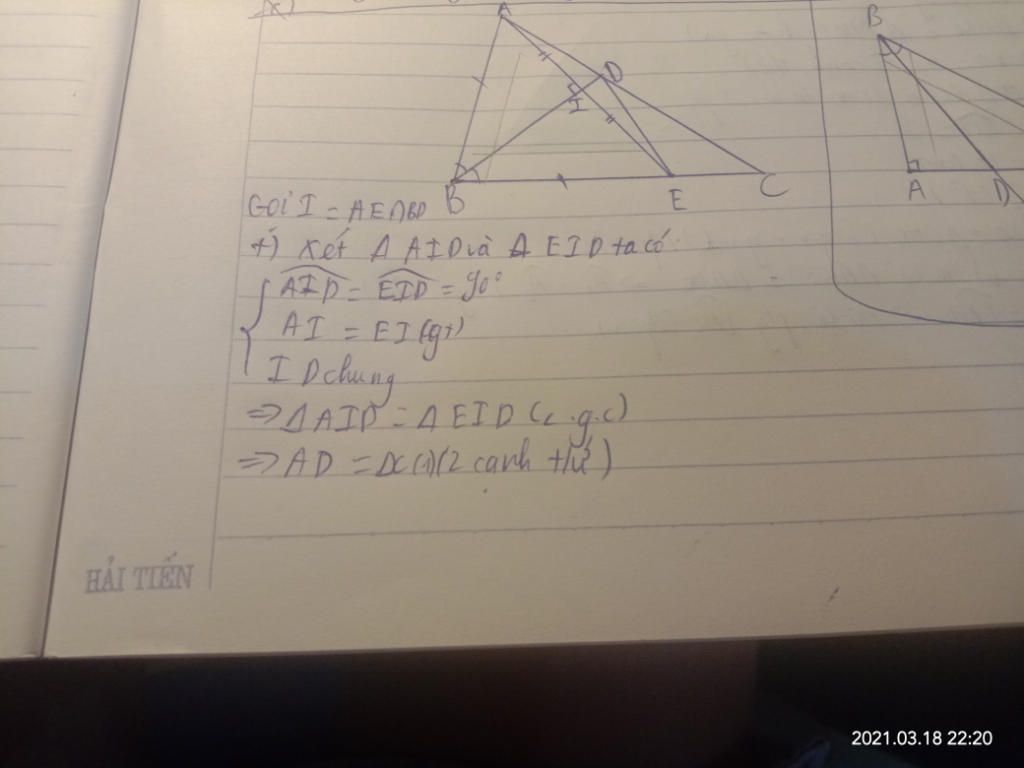 A
D
I
B
E
C
B
A
D
Gọi I = AE∩BD
+) Xét Δ AID và Δ EID ta có
AID = EID = 90°
AI = EI (gt)
ID chung
=> ΔAID = ΔEID (c.g.c)
=> AD = DC (1) (2 cạnh t/ứ)
HẢI TIẾN
2021.03.18 22:20